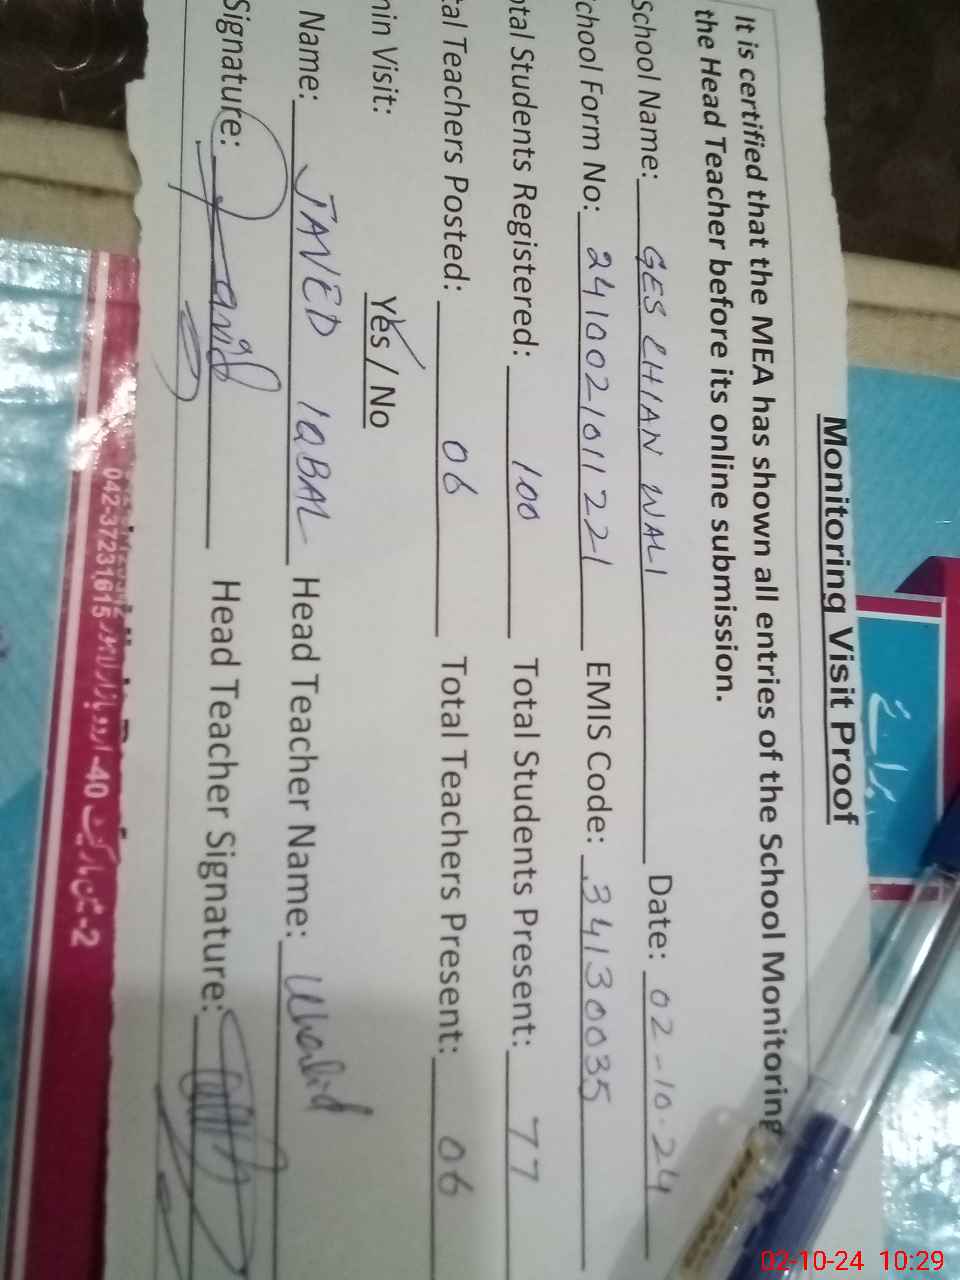 Monitoring Visit Proof
It is certified that the MEA has shown all entries of the School Monitoring
the Head Teacher before its online submission.
School Name: GES CHIAN WALI Date: 02-10-24
chool Form No: 241002101122 1 EMIS Code: 34130035
otal Students Registered: 100 Total Students Present: 77
tal Teachers Posted: 06 Total Teachers Present: 06
min Visit: Yes / No
Name: JAVED IQBAL Head Teacher Name: Khalid
Signature: Javid Head Teacher Signature:
042-37231615
2-
40-
02-10-24 10:29